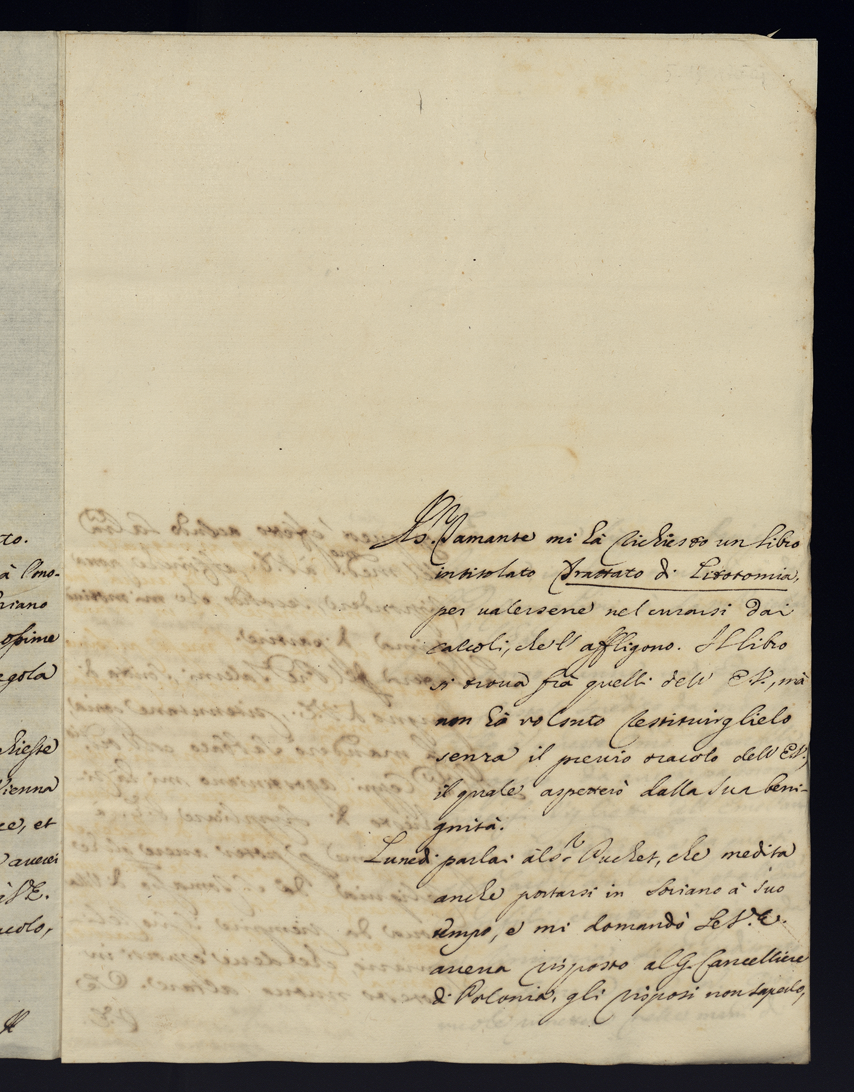 to.
à Cono-
riano
ossime
egola
chieste
Vienna
ce, et
averei
à V.E.
acolo,
Mr. Damante mi hà richiesto un libro
intitolato Trattato di Litotomia,
per valersene nel curarsi dai
calcoli, che l'affligono. Il libro
si trova frà quelli dell' E.V., mà
non hò voluto restituirglielo
senza il previo oracolo dell'E.V.,
il quale aspetterò dalla sua beni-
gnità.
Lunedì parlai àl Sr. Puchet, che medita
anche portarsi in Soriano à suo
tempo, e mi domandò se V.E.
aveva risposto al G. Cancelliere
di Polonia, gli risposi non saperlo,